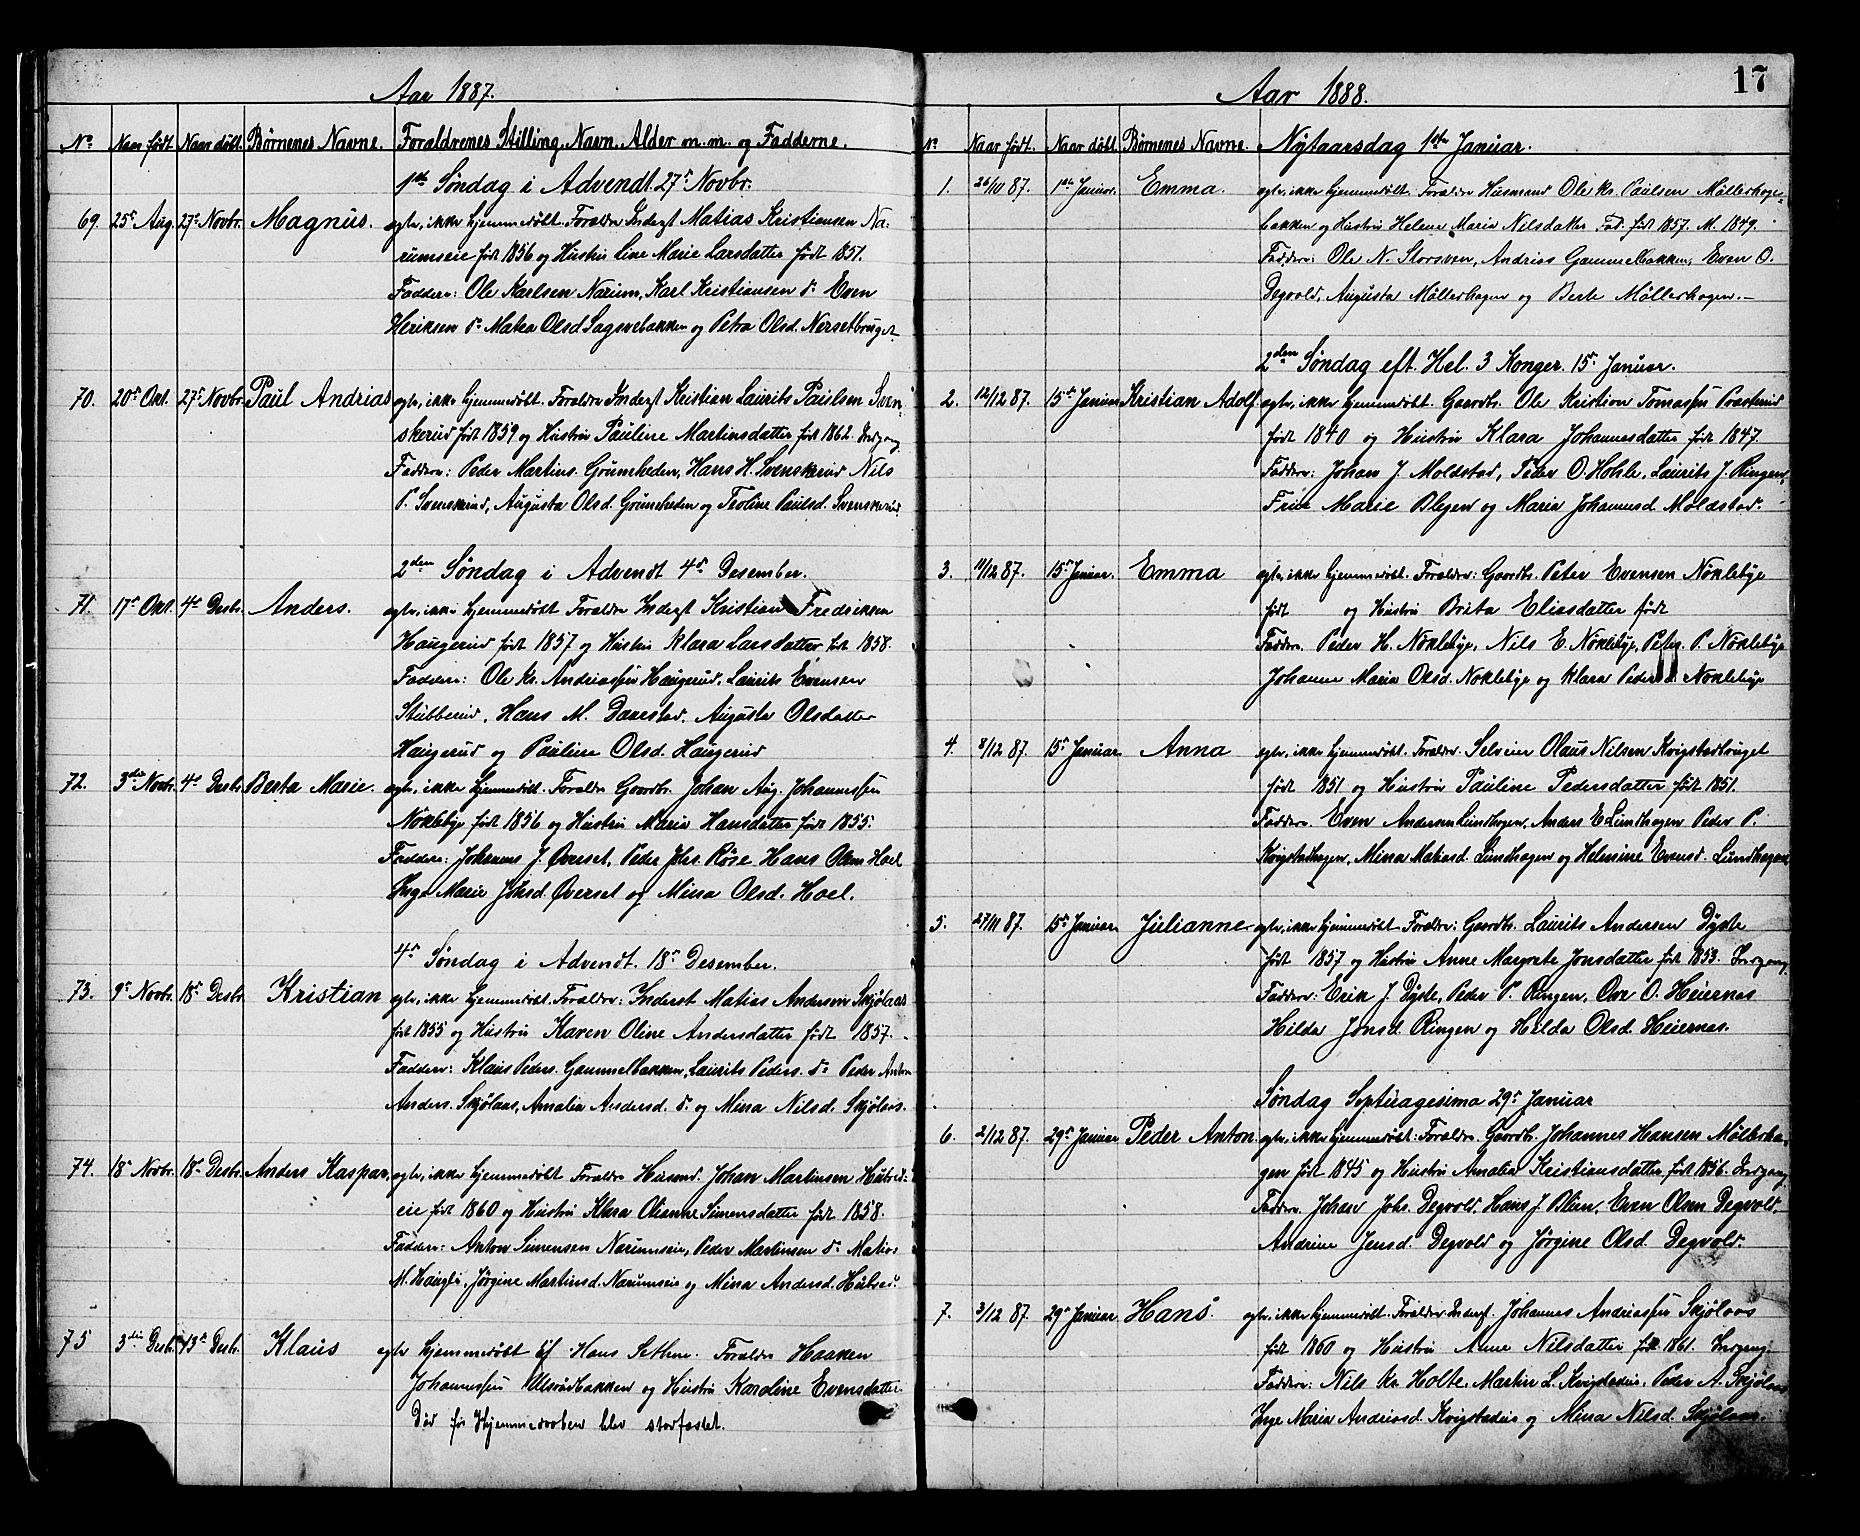 Aar 1887.
No. Naar født Naar døbt. Børnenes Navne. Forældrenes Stilling, Navn, Alder m. m. og Fadderne.
1ste Søndag i Advendt. 27de Novbr.
69. 25de Aug. 27de Novbr. Magnus. ægte, ikke hjemmedøbt. Forældre Inderst Matias Kristiansen Na-
rumseie født 1856 og Hustru Line Marie Larsdatter født 1851.
Faddere: Ole Karlsen Narum, Karl Kristiansen do Even
do Matea Olsd Sagsvebakken og Petra Olsd.
70. 20de Okt. 27de Novbr. Paul Andrias ægte, ikke hjemmedøbt. Forældre Inderst Kristian Laurits Paulsen Sven-
skerud født 1859 og Hustru Pauline Martinsdatter født 1862. Indgang
Faddere: Peder Martins. Grümsheden, Hans H. Svenskerud Nils
P. Svenskerud, Augusta Olsd. og Teoline Paulsd. Svenskerud.
2den Søndag i Advendt 4de Desember.
71. 17de Okt. 4de Desbr. Anders. ægte, ikke hjemmedøbt Forældre Inderst Kristian Fredriksen
Haugerud født 1857 og Hustru Klara Larsdatter født 1858.
Faddere: Ole Kr. Andriassen Haugerud, Laurits Evensen
Stubberud, Hans M. Daarstad, Augusta Olsdatter
Haugerud og Pauline Olsd. Haugerud
72. 3die Novbr. 4de Desbr. Berta Marie. ægte, ikke hjemmedøbt. Forældre Gaardbr. Johan Aug. Johannessen
Nöklebye født 1856 og Hustru Maria Hansdatter født 1855.
Faddere: Johannes J. Øverset, Peder Johs. Röse Hans Olsen Hoel
Inga Marie Johsd. Øverset og Mina Olsd. Hoel.
4de Søndag i Advendt. 18de Desember.
73. 9de Novbr. 18de Desbr. Kristian ægte, ikke hjemmedøbt. Forældre: Inderst Matias Andersen Skjölaas
født 1855 og Hustru Karen Oline Andersdatter født 1857.
Faddere: Klaus Peders. Gammelbakken, Laurits Peders. do Peder Anton
Anders. Skjölaas, Amalia Andersd. do og Mina Nilsd. Skjölaas.
74. 18de Novbr. 18de Desbr. Anders Kaspar. ægte, ikke hjemmedøbt Forældre Husmd. Johan Martinsen
eie født 1860 og Hustru Klara Olianne Simensdatter født 1858.
Faddere: Anton Simensen Narumseie, Peder Martinsen do Matias
M. Jørgine Martinsd. Narumseie og Mina Andersd.
75 3die Desbr. 13de Desbr. Klaus ægte hjemmedøbt af Hans Sethne. Forældre Haaken
Johannessen Ulsrudbakken og Hustru Karoline Evensdatter
Död før Hjemmedaaben blev stadfæstet.
17
Aar 1888.
No Naar født. Naar döbt Børnenes Navne. Nytaarsdag 1ste Januar.
1. 26/11 87. 1ste Januar. Emma. ægte, ikke hjemmedøbt Forældre Husmand Ole Kr. Paulsen Möllerhage-
bakken og Hustru Helene Maria Nilsdatter Fad. født 1857. M. 1849.
Faddere: Ole N. Storsven, Andrias Gammelbakken, Even O.
Degvold, Augusta Möllerhagen og Berte Möllerhagen.—
2den Søndag eft. Hel. 3 Konger. 15de Januar.
2. 12/12 87. 15de Januar Kristian Adolf ægte, ikke hjemmedøbt. Gaardbr. Ole Kristian Tomassen Præsterud
født 1840 og Hustru Klara Johannesdatter født 1847.
Faddere: Johan J Moldstad, Peder O. Hohle, Laurits J. Ringen,
Frue Marie Blegen og Maria Johannesd. Moldstad.
3. 11/12 87. 15de Januar. Emma ægte, ikke hjemmedøbt. Forældre: Gaardbr. Peter Evensen Nöklebye
født og Hustru Brita Eliasdatter født
Faddere. Peder H. Nöklebye, Nils E. Nöklebye, Peter P. Nöklebye
Johanne Maria Olsd. Nöklebye og Klara Pedersd. Nöklebye
4. 8/12 87. 15de Januar Anna ægte, ikke hjemmedøbt. Forældre. Selveier Olaus Nilsen Kvigstadbruget
født 1851 og Hustru Pauline Pedersdatter født 1851.
Faddere. Even Andersen Lundhagen, Anders E Lundhagen Peder P.
Kvigstadhagen, Mina Matiasd. Lundhagen og Helmine Evensd. Lundhagen
5. 27/11 87. 15de Januar Julianne ægte, ikke hjemmedøbt Forældre: Gaardbr. Laurits Andersen Dyste
født 1857 og Hustru Anne Margrete Jonsdatter født 1853. Indgang
Faddere: Erik J. Dyste, Peder P. Ringen, Ove O. Heiernes
Hilda Jonsd. Ringen og Hilda Olsd. Heiernes.
Søndag Septuagesima 29de Januar
6. 2/12 87. 29de Januar Peder Anton. ægte, ikke hjemmedøbt. Forældre. Gaardbr. Johannes Hansen Møllerha-
gen født 1845 og Hustru Amalie Kristiansdatter født 1856. Indgang
Faddere. Johan Johs. Degvold, Hans J. Blien, Even Olsen Degvold,
Andrine Jensd. Degvold og Jørgine Olsd. Degvold.
7. 3/12 87. 29de Januar Hans ægte, ikke hjemmedøbt. Forældre Inderst. Johannes Andriassen Skjölaas
født 1860 og Hustru Anne Nilsdatter født 1861. Indgang.
Faddere: Nils Kr. Holte, Martin L. Kvigstadeie, Peder A. Skjölaas
Inge Maria Andriasd. Kvigstadeie og Mina Nilsd. Skjölaas.